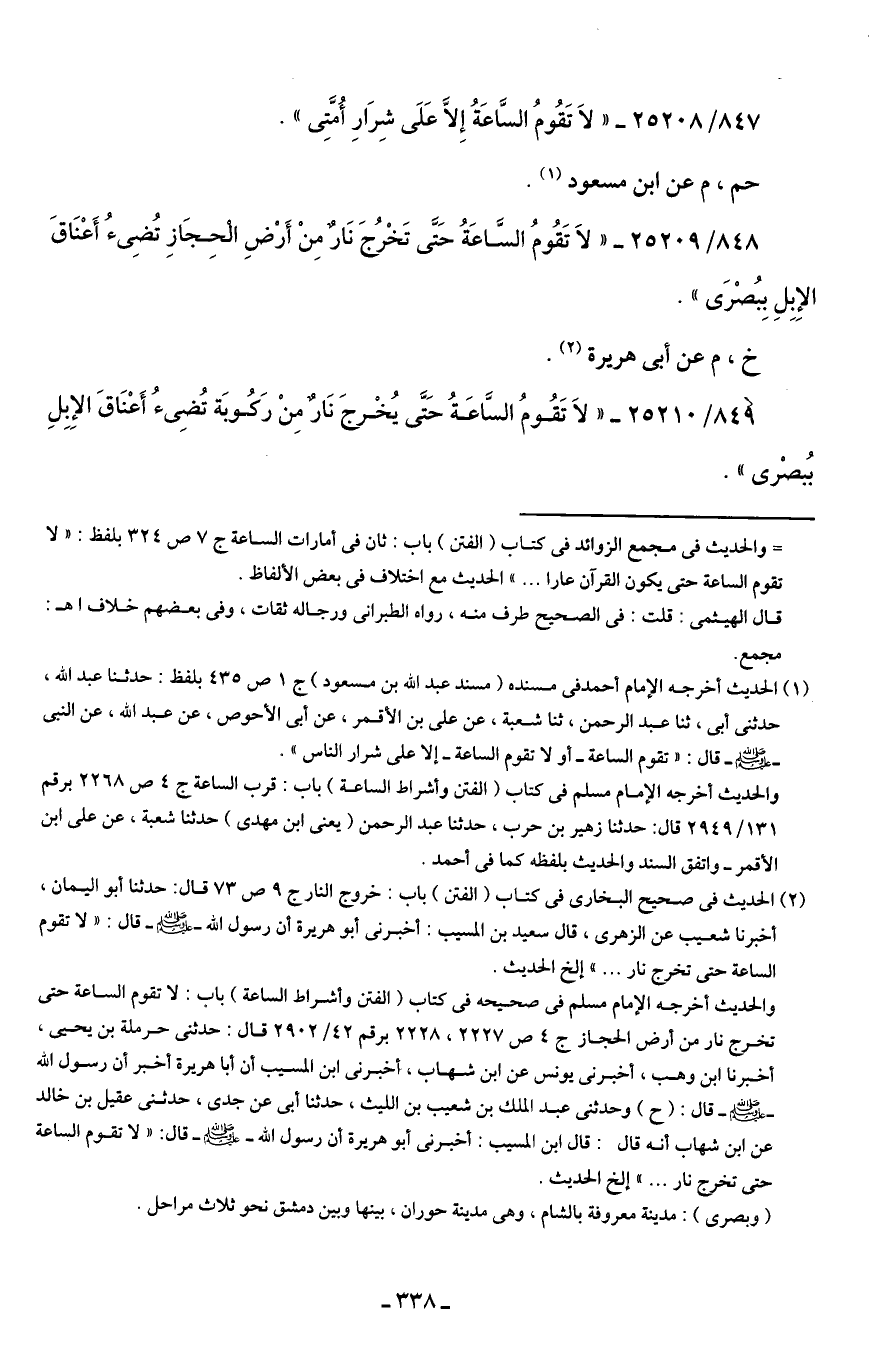 ٨٤٧/ ٢٥٢٠٨ ـ « لاَ تَقُومُ السَّاعَةُ إِلاَّ عَلَى شِرَارِ أُمَّتِى » .
حم ، م عن ابن مسعود (١) .
٨٤٨/ ٢٥٢٠٩ ـ « لاَ تَقُومُ السَّاعَةُ حَتَّى تَخْرُجَ نَارٌ مِنْ أَرْضِ الْحِجَازِ تُضِىءُ أَعْنَاقَ
الإِبِلِ بِبُصْرَى » .
خ ، م عن أبى هريرة (٢) .
٨٤٩/ ٢٥٢١٠ ـ « لاَ تَقُومُ السَّاعَةُ حَتَّى يُخْرِجَ نَارٌ مِنْ رَكُوبَة تُضِىءُ أَعْنَاقَ الإِبِلِ
بُبصْرى » .
= والحديث فى مجمع الزوائد فى كتاب ( الفتن ) باب : ثان فى أمارات الساعة ج ٧ ص ٣٢٤ بلفظ : « لا
تقوم الساعة حتى يكون القرآن عارا ... » الحديث مع اختلاف فى بعض الألفاظ .
قال الهيثمى : قلت : فى الصحيح طرف منه ، رواه الطبرانى ورجاله ثقات ، وفى بعضهم خلاف ا هـ :
مجمع.
(١) الحديث أخرجه الإمام أحمدفى مسنده ( مسند عبد الله بن مسعود ) ج ١ ص ٤٣٥ بلفظ : حدثنا عبد الله ،
حدثنى أبى ، ثنا عبد الرحمن ، ثنا شعبة ، عن على بن الأقمر ، عن أبى الأحوص ، عن عبد الله ، عن النبى
ـ ﷺ ـ قال : « تقوم الساعة ـ أو لا تقوم الساعة ـ إلا على شرار الناس » .
والحديث أخرجه الإمام مسلم فى كتاب ( الفتن وأشراط الساعة ) باب : قرب الساعة ج ٤ ص ٢٢٦٨ برقم
١٣١/ ٢٩٤٩ قال: حدثنا زهير بن حرب ، حدثنا عبد الرحمن ( يعنى ابن مهدى ) حدثنا شعبة ، عن على ابن
الأقمر ـ واتفق السند والحديث بلفظه كما فى أحمد .
(٢) الحديث فى صحيح البخارى فى كتاب ( الفتن ) باب : خروج النار ج ٩ ص ٧٣ قال: حدثنا أبو اليمان ،
أخبرنا شعيب عن الزهرى ، قال سعيد بن المسيب : أخبرنى أبو هريرة أن رسول الله ـ ﷺ ـ قال : « لا تقوم
الساعة حتى تخرج نار ... » إلخ الحديث .
والحديث أخرجه الإمام مسلم فى صحيحه فى كتاب ( الفتن وأشراط الساعة ) باب : لا تقوم الساعة حتى
تخرج نار من أرض الحجاز ج ٤ ص ٢٢٢٧ ، ٢٢٢٨ برقم ٤٢/ ٢٩٠٢ قال : حدثنى حرملة بن يحيى ،
أخبرنا ابن وهب ، أخبرنى يونس عن ابن شهاب ، أخبرنى ابن المسيب أن أبا هريرة أخبر أن رسول الله
ـ ﷺ ـ قال : ( ح ) وحدثنى عبد الملك بن شعيب بن الليث ، حدثنا أبى عن جدى ، حدثنى عقيل بن خالد
عن ابن شهاب أنه قال : قال ابن المسيب : أخبرنى أبو هريرة أن رسول الله ـ ﷺ ـ قال: « لا تقوم الساعة
حتى تخرج نار ... » إلخ الحديث .
( وبصرى ) : مدينة معروفة بالشام ، وهى مدينة حوران ، بينها وبين دمشق نحو ثلاث مراحل .
ـ ٣٣٨ ـ